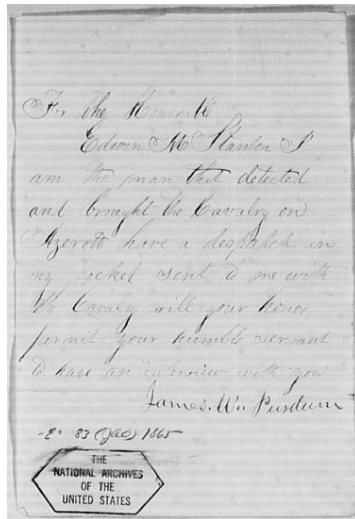 For the Honorable
Edwin M Stanton I
am the man that detected
and brought the Cavalry on
Azerots have a despatch in
my pocket sent to me with
the Cavalry will your honor
permit your humble servant
to have an interview with you
James. Wm Purdum
"P" 83 (JAO) 1865
THE
NATIONAL ARCHIVES
OF THE
UNITED STATES